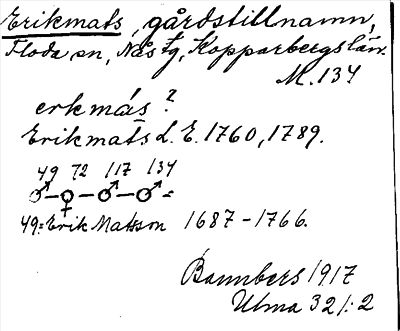 Erikmats, gårdstillnamn,
Floda sn, Nås tg, Kopparbergs län.
M. 134
erkmás ?
Erikmats d. E. 1760, 1789.
49 72 117 134
♂–♀–♂–♂=
49= Erik Matsson 1687–1766.
Bannbers 1917
Ulma 321:2